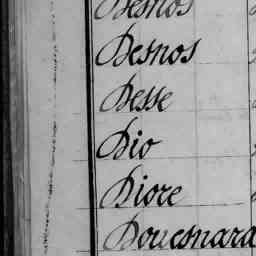 Desnos
Desnos
Desse
Dio
Diore
Douesnard